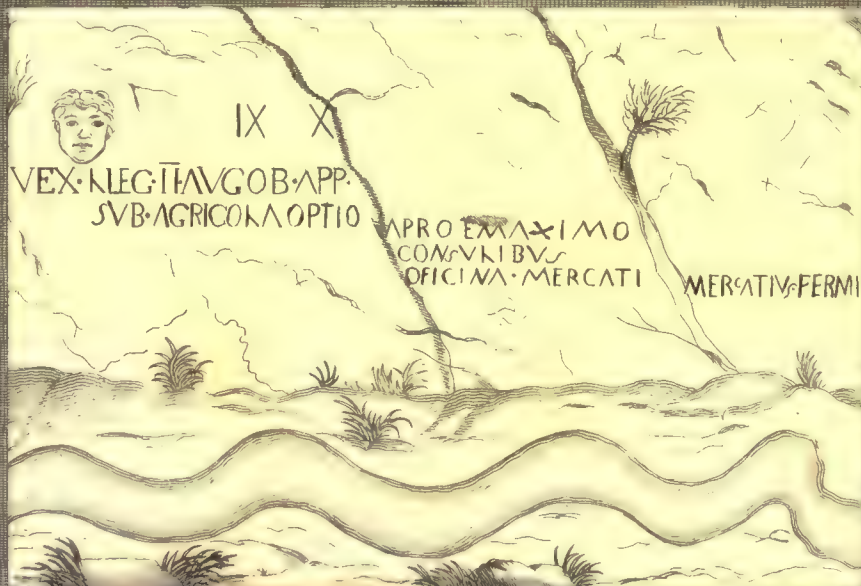 IX X
VEX·LLEG·II AVG OB·APP·
SVB·AGRICOLA OPTIO
APRO E MAXIMO
CONSVLIBVS
OFICINA·MERCATI
MERCATIVS·FERMI